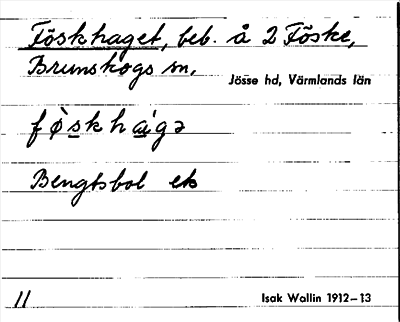 Föskhaget, beb. å 2 Föske,
Brunskogs sn,
Jösse hd, Värmlands län
fø̀skhai̯gə
Bengtsbol ek
11
Isak Wallin 1912–13